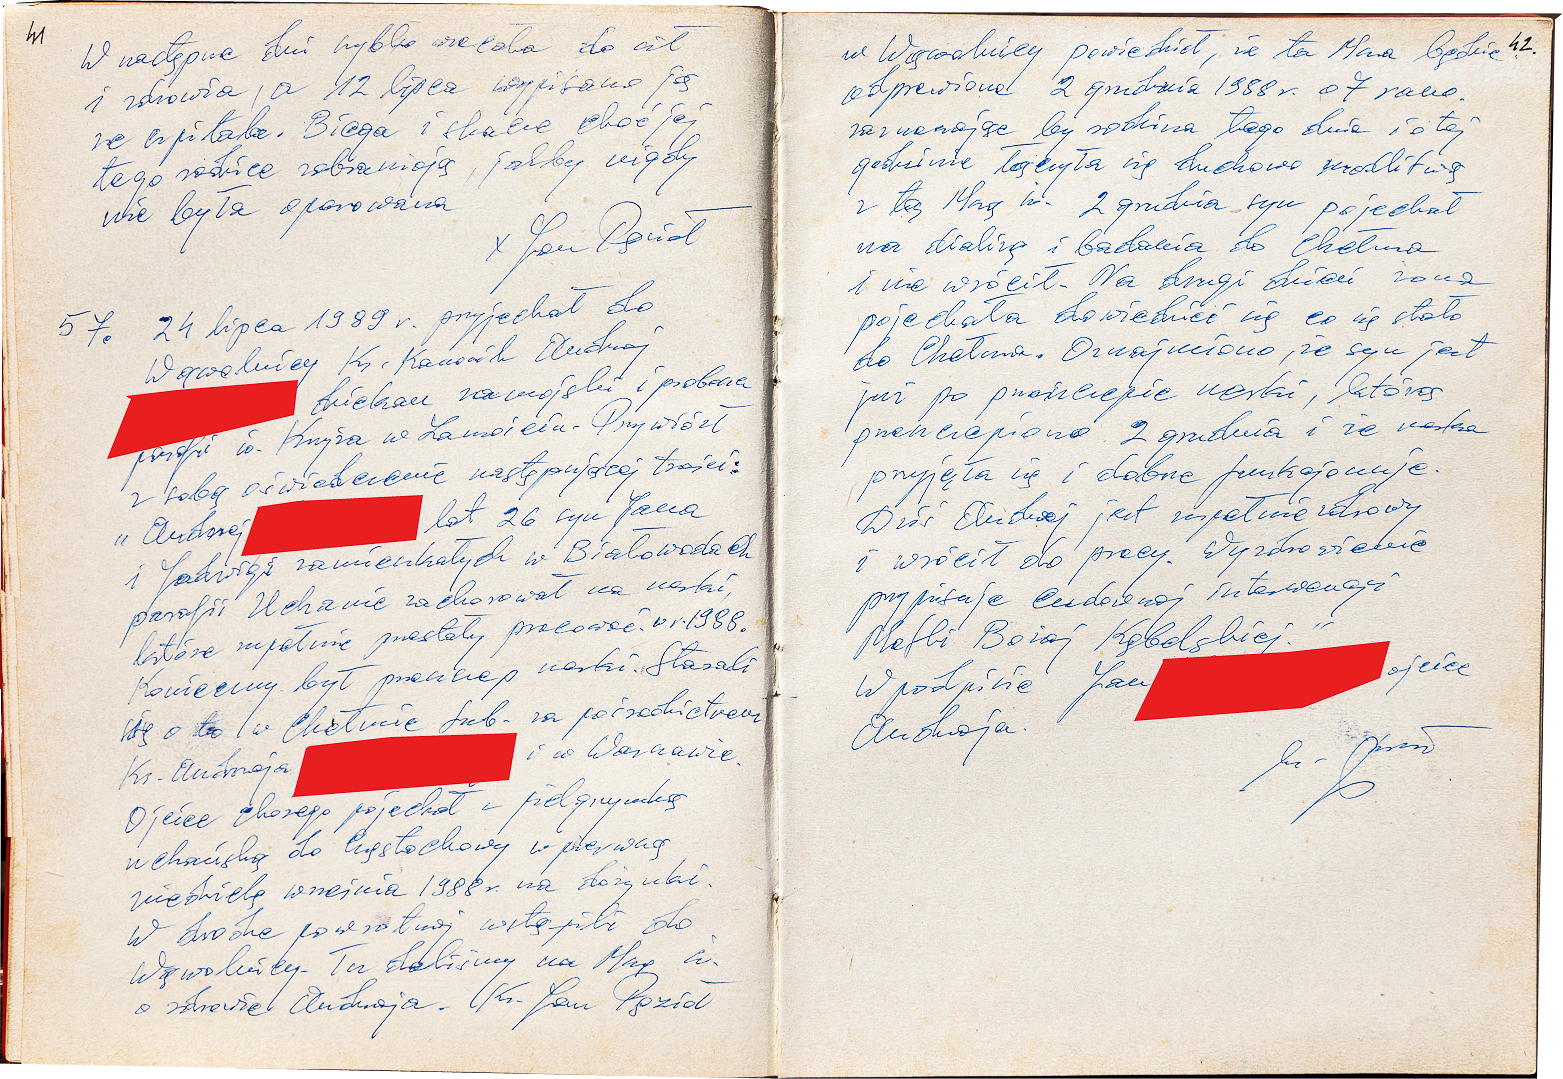 41
W następne dni szybko wracała do sił
i zdrowia, a 12 lipca wypisano ją
ze szpitala. Biega i skacze choć jej
tego rodzice zabraniają, jakby nigdy
nie była operowana
x Jan Pęzioł
57. 24 lipca 1989 r. przyjechał do
Wąwolnicy Ks. Kanonik Andrzej
dziekan zamojski i proboszcz
parafii św. Krzyża w Zamościu. Przywiózł
z sobą oświadczenie następującej treści:
"Andrzej lat 26 syn Jana
i Jadwigi zamieszkałych w Białowodach
parafii Uchanie zachorował na nerki,
które zupełnie przestały pracować. w r. 1988.
Konieczny był przeszczep nerki. Starali
się o to w Chełmie Lub. za pośrednictwem
Ks. Andrzeja i w Warszawie.
Ojciec chorego pojechał z pielgrzymką
uchańską do Częstochowy w pierwszą
niedzielę września 1988 r. na dożynki.
W drodze powrotnej wstąpili do
Wąwolnicy. Tu daliśmy na Mszę św.
o zdrowie Andrzeja. Ks. Jan Pęzioł
42.
w Wąwolnicy powiedział, że ta Msza będzie
odprawiona 2 grudnia 1988 r. o 7 rano.
zaznaczając by rodzina tego dnia i o tej
godzinie łączyła się duchowo modlitwą
z tą Mszą św. 2 grudnia syn pojechał
na dializę i badania do Chełma
i nie wrócił. Na drugi dzień żona
pojechała dowiedzieć się co się stało
do Chełma. Oznajmiono, że syn jest
już po przeszczepie nerki, którą
przeszczepiono 2 grudnia i że nerka
przyjęła się i dobrze funkcjonuje.
Dziś Andrzej jest zupełnie zdrowy
i wrócił do pracy. Wyzdrowienie
przypisuje cudownej interwencji
Matki Bożej Kębelskiej."
W podpisie Jan ojciec
Andrzeja.